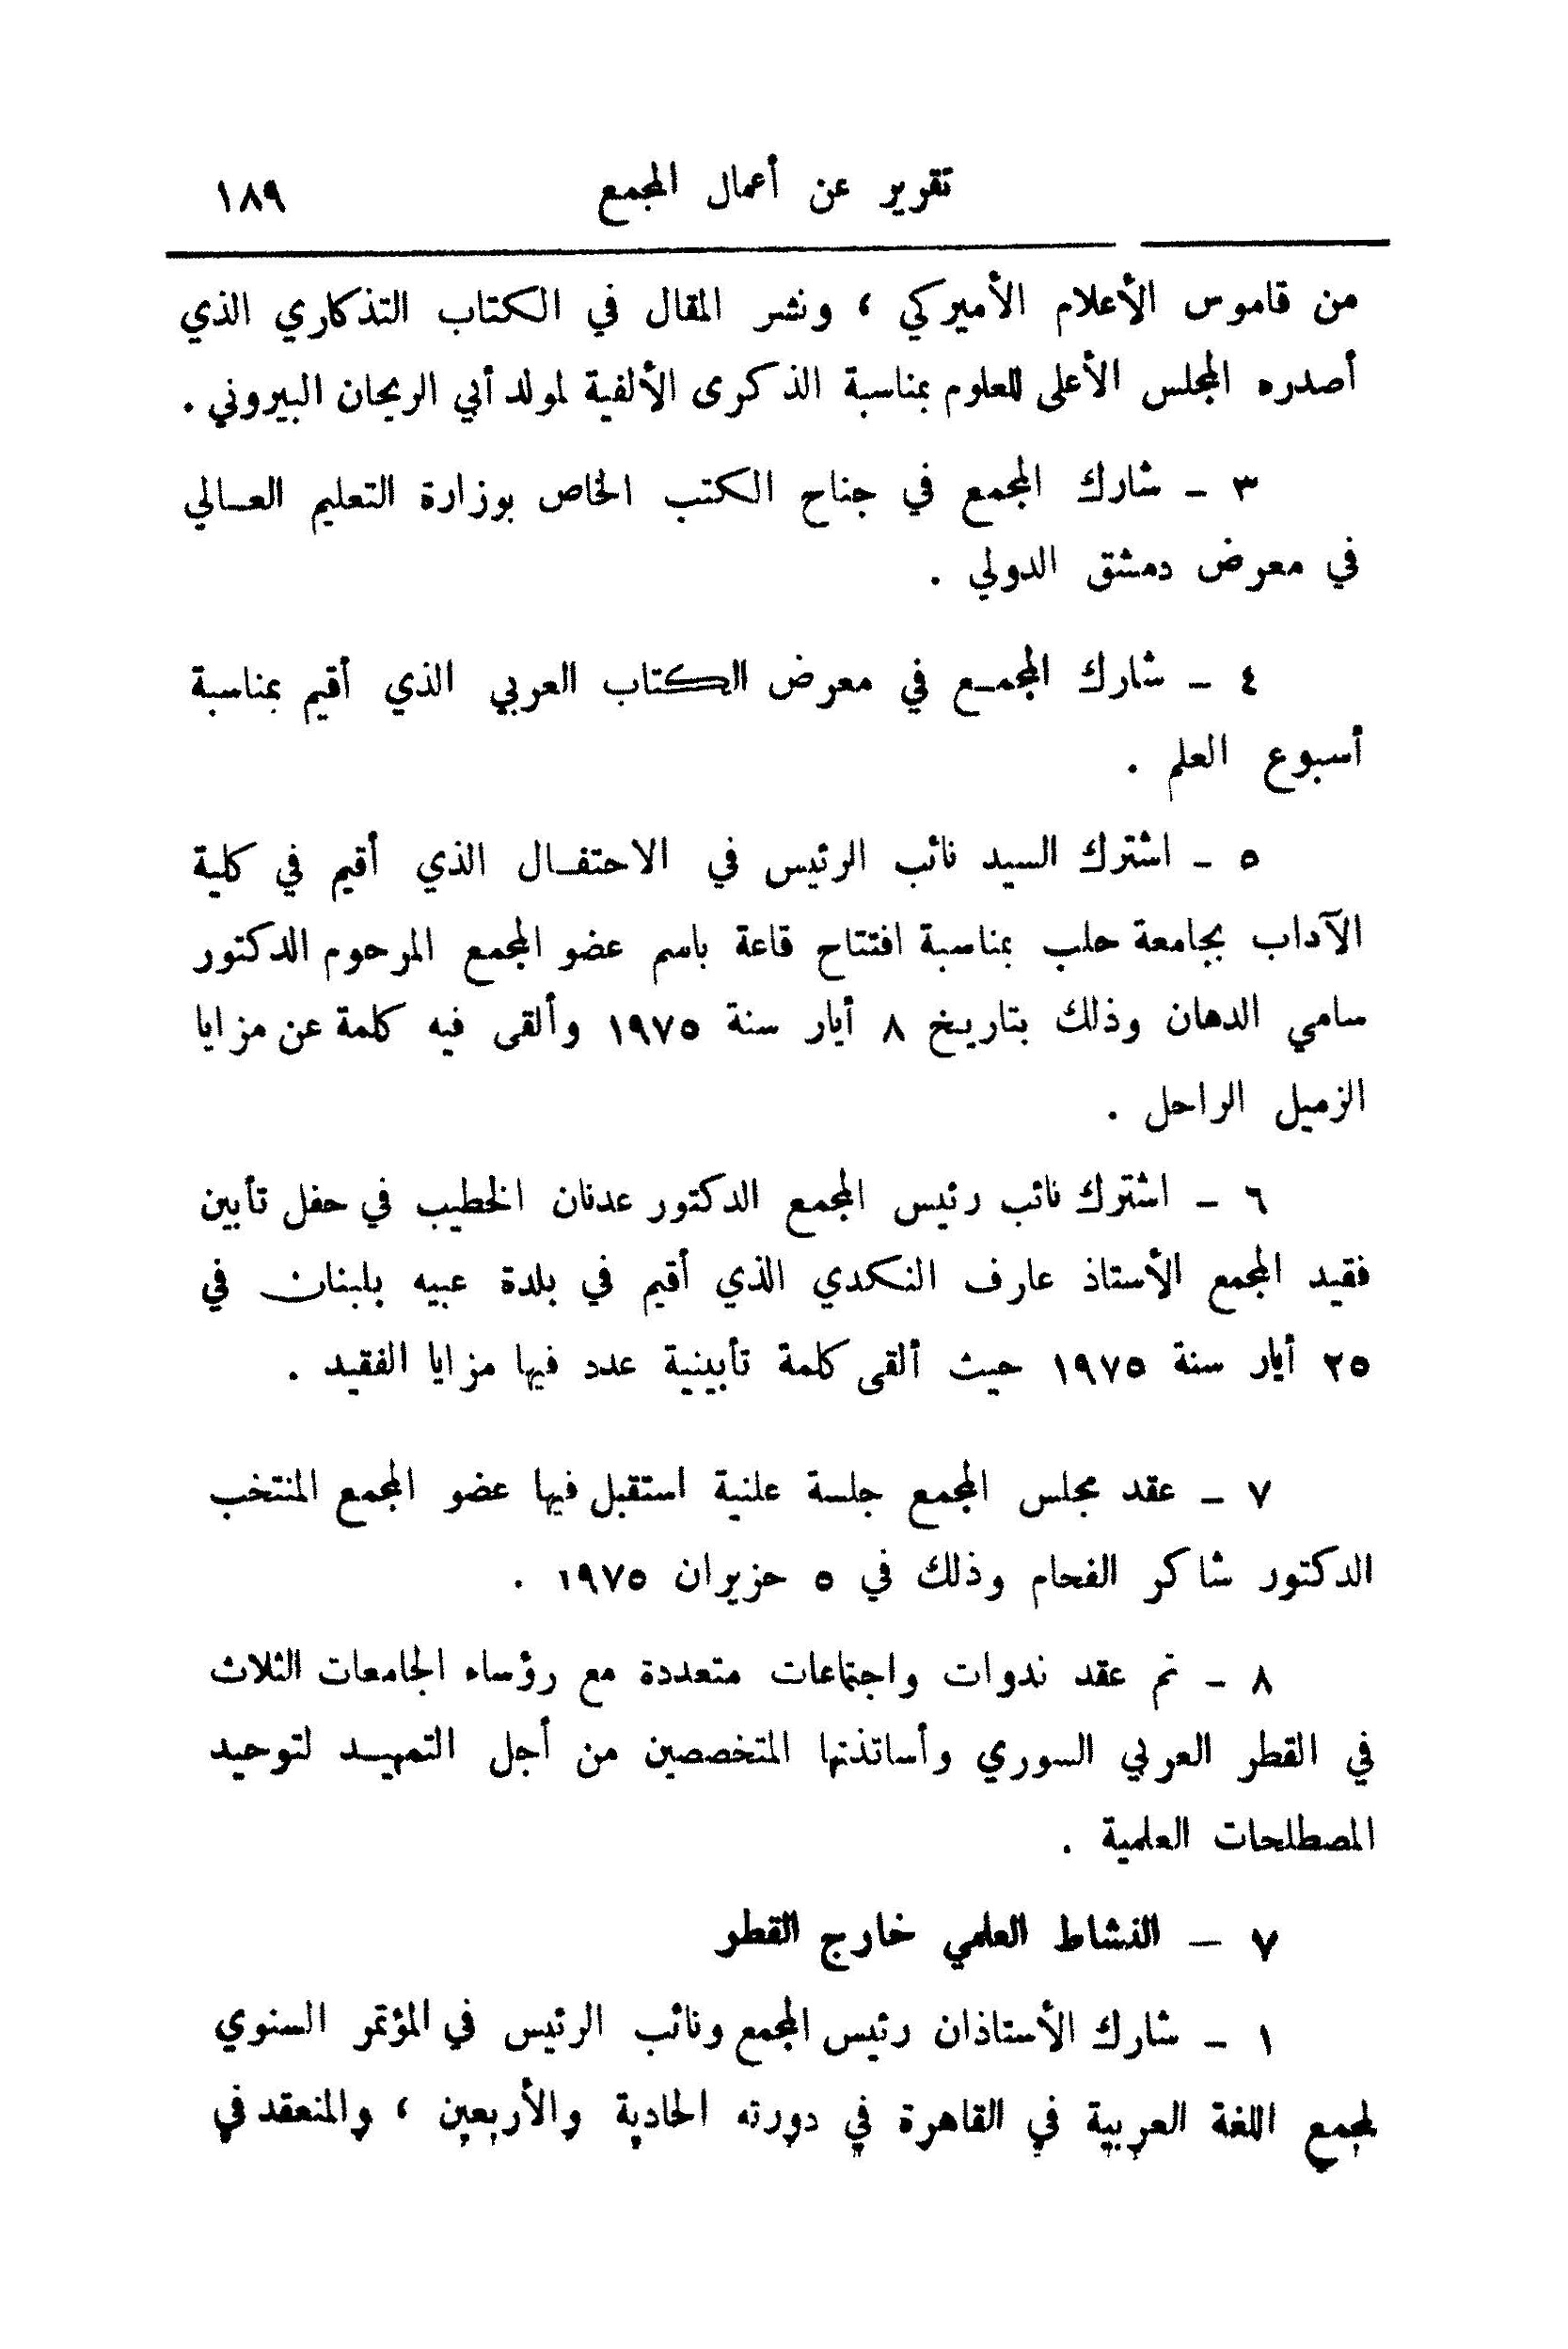 تقرير عن أعمال المجمع ١٨٩
من قاموس الأعلام الأميركي ، ونشر المقال في الكتاب التذكاري الذي
أصدره المجلس الأعلى للعلوم بمناسبة الذكرى الألفية لمولد أبي الريحان البيروني .
٣ ـ شارك المجمع في جناح الكتب الخاص بوزارة التعليم العـالي
في معرض دمشق الدولي .
٤ ـ شارك المجمـع في معرض الكتاب العربي الذي أقيم بمناسبة
أسبوع العلم .
٥ ـ اشترك السيد نائب الرئيس في الاحتفـال الذي أقيم في كلية
الآداب بجامعة حلب بمناسبة افتتاح قاعة باسم عضو المجمع المرحوم الدكتور
سامي الدهان وذلك بتاريخ ٨ أيار سنة ١٩٧٥ وألقى فيه كلمة عن مزايا
الزميل الراحل .
٦ ـ اشترك نائب رئيس المجمع الدكتور عدنان الخطيب في حفل تأبين
فقيد المجمع الأستاذ عارف النكدي الذي أقيم في بلدة عبيه بلبنان في
٢٥ أيار سنة ١٩٧٥ حيث ألقى كلمة تأبينية عدد فيها مزايا الفقيد .
٧ ـ عقد مجلس المجمع جلسة علنية استقبل فيها عضو المجمع المنتخب
الدكتور شاكر الفحام وذلك في ٥ حزيران ١٩٧٥ .
٨ ـ تم عقد ندوات واجتماعات متعددة مع رؤساء الجامعات الثلاث
في القطر العربي السوري وأساتذتها المتخصصين من أجل التمهيـد لتوحيد
المصطلحات العلمية .
٧ ـ النشاط العلمي خارج القطر
١ ـ شارك الأستاذان رئيس المجمع ونائب الرئيس في المؤتمر السنوي
لمجمع اللغة العربية في القاهرة في دورته الحادية والأربعين ، والمنعقد في